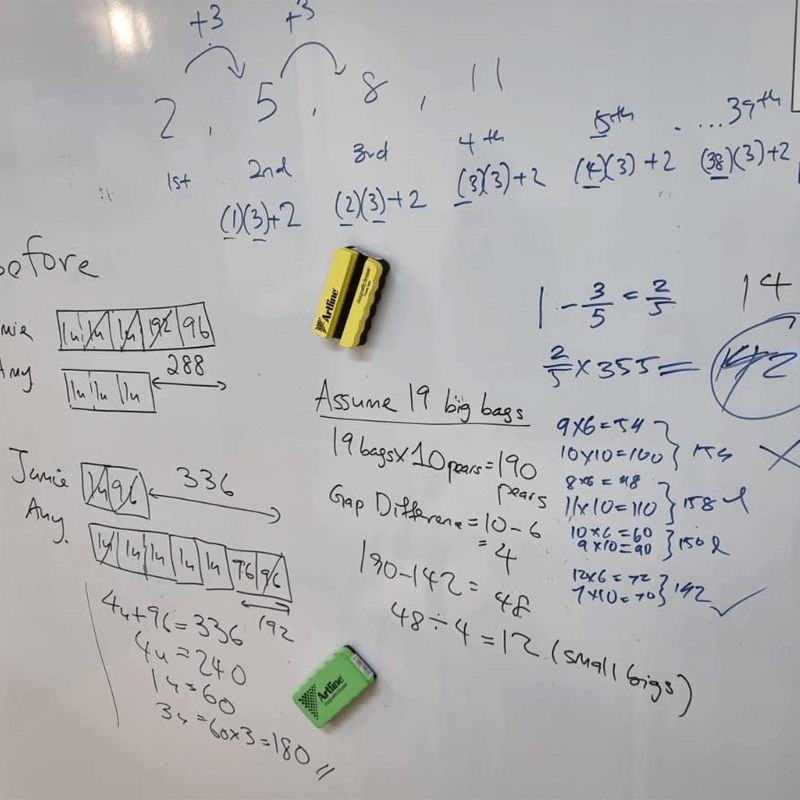 +3 +3
2, 5, 8, 11
1st 2nd 3rd 4th 5th ....39th
(1)(3)+2 (2)(3)+2 (3)(3)+2 (4)(3)+2 (38)(3)+2
efore
mie 1u 1u 1u 192 96
Amy 1u 1u 1u 288
Jamie 1u 96 336
Amy. 1u 1u 1u 1u 1u 96
192
4u+96=336
4u=240
1u=60
3u=60x3=180//
Artline
Assume 19 big bags
19 bags x 10 pears=190
pears
Gap Difference=10-6
=4
190-142=48
48÷4=12 (small bags)
Artline
1-3/5=2/5 14
2/5x355=142
9x6=54
10x10=100 } 154
8x6=48
11x10=110 } 158
10x6=60
9x10=90 } 150
12x6=72
7x10=70 } 142